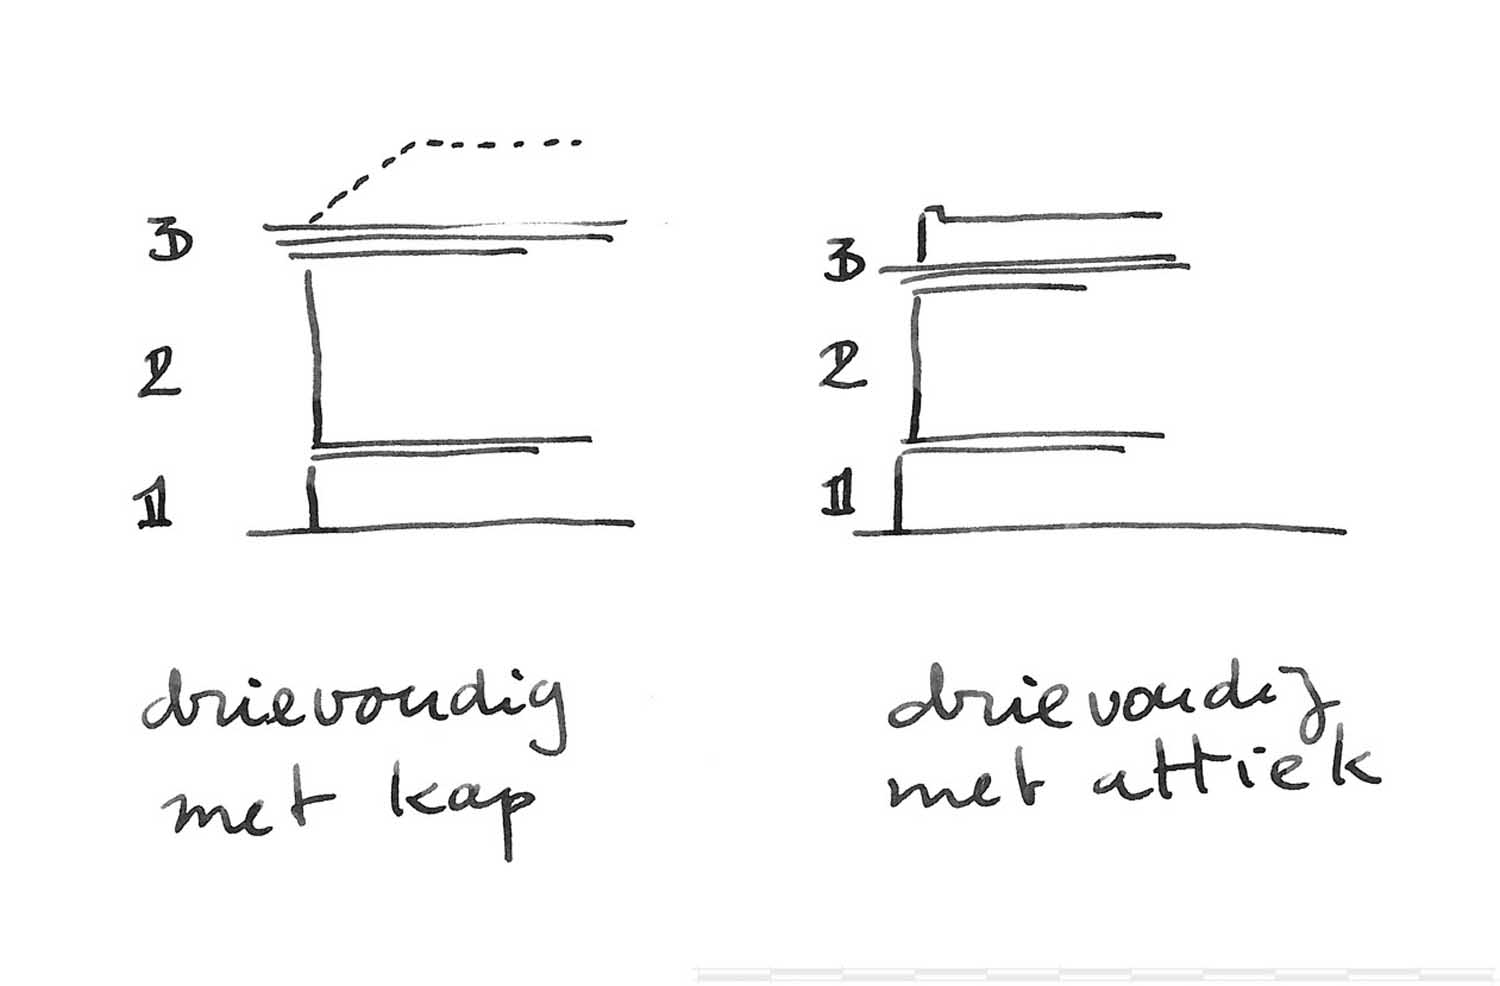 3
2
1
drievoudig
met kap
3
2
1
drievoudig
met attiek